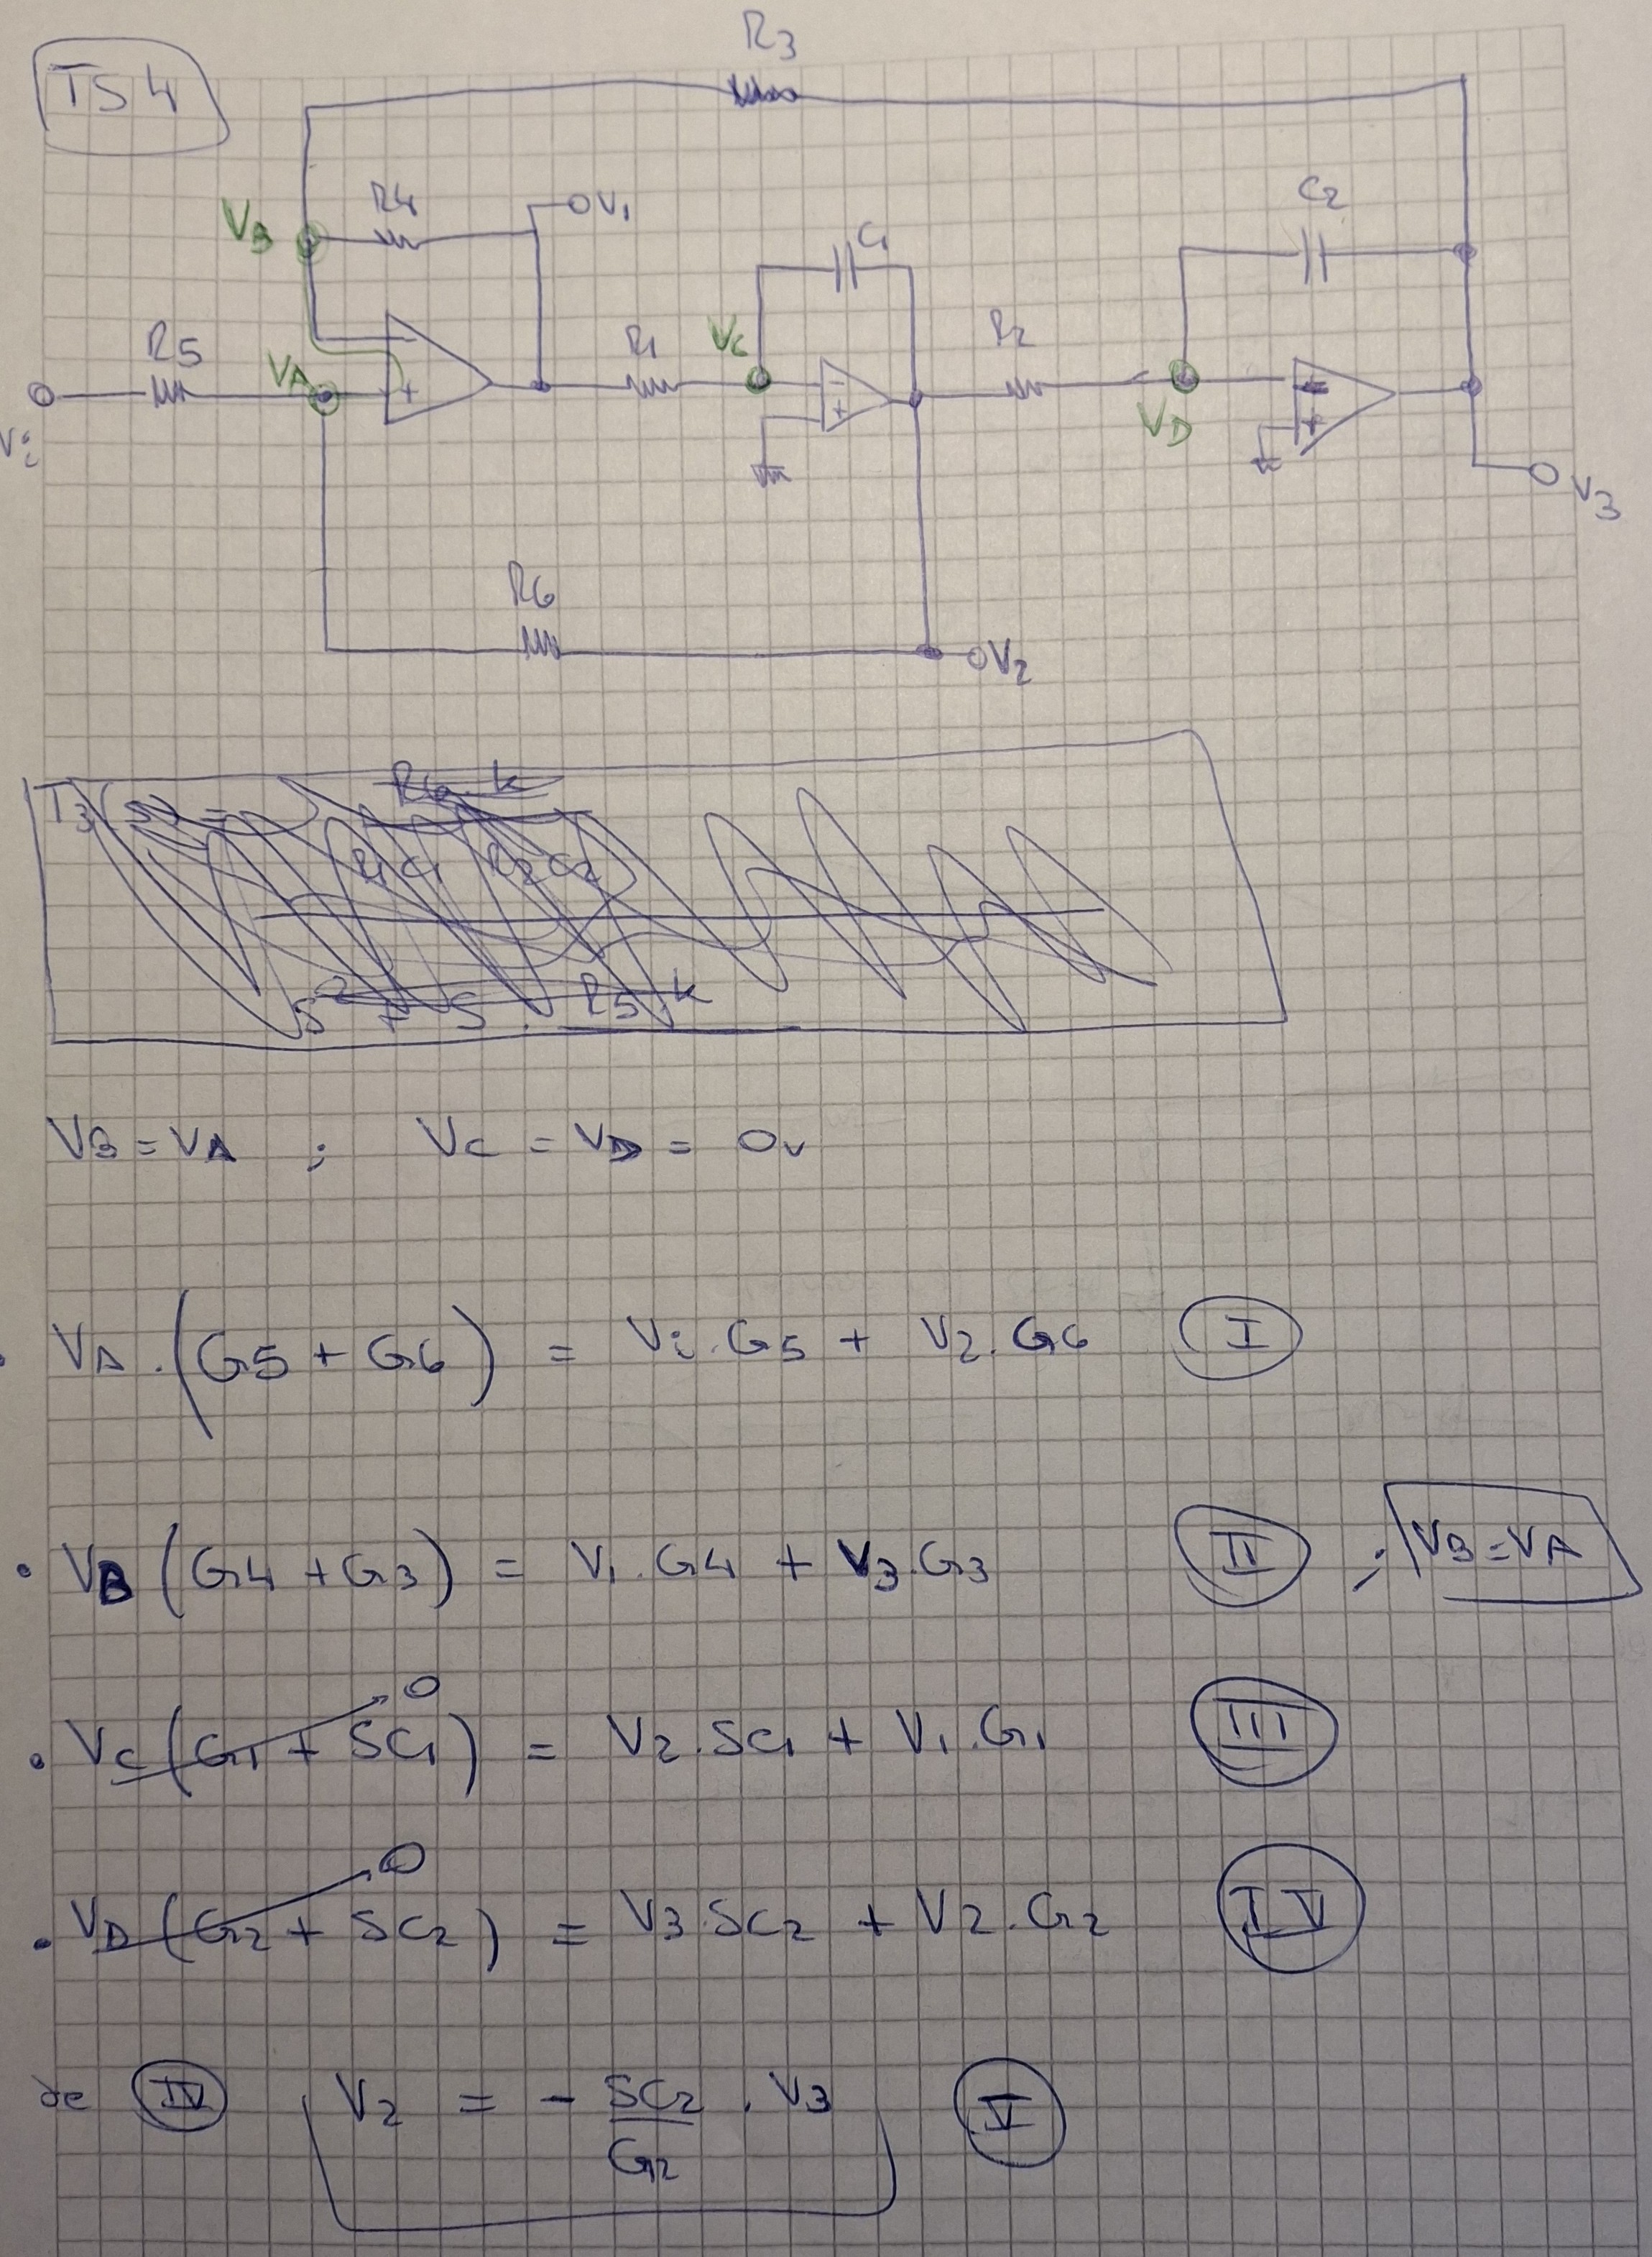 TS4
R3
VB R4 V1 C2
C1
R5 VA R1 VC R2
Vi VD
V3
R6
V2
T3(s) = R6 . k
R1C1 R2C2
s² + s . R5 . k
VB = VA ; VC = VD = 0v
• VA . (G5 + G6) = Vi . G5 + V2 . G6 I
• VB (G4 + G3) = V1 . G4 + V3 . G3 II ; VB = VA
• VC (G1 + SC1) 0 = V2 . SC1 + V1 . G1 III
• VD (G2 + SC2) 0 = V3 . SC2 + V2 . G2 IV
de IV V2 = - SC2 / G2 . V3 V